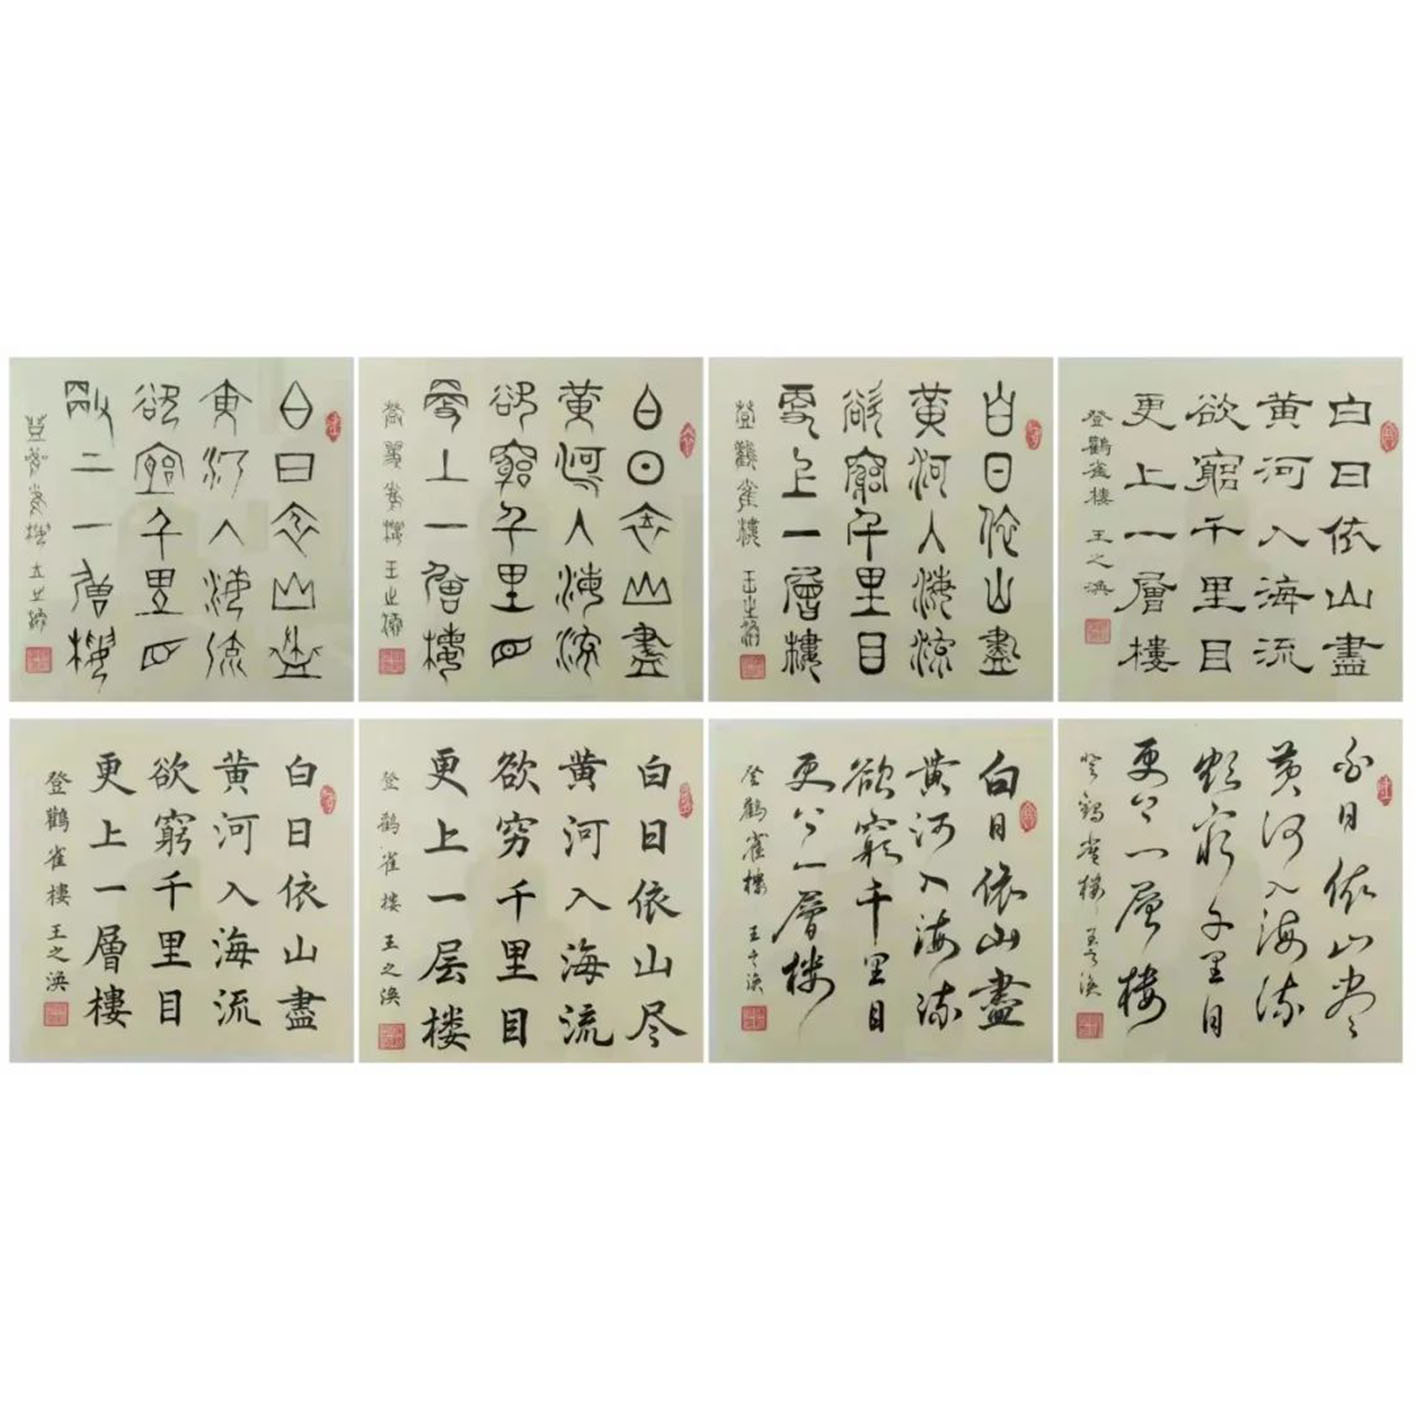 白日依山盡
黃河入海流
欲窮千里目
更上一層樓
登鸛雀樓 王之渙
白日依山盡
黃河入海流
欲窮千里目
更上一層樓
登鸛雀樓 王之渙
白日依山盡
黃河入海流
欲窮千里目
更上一層樓
登鸛雀樓 王之渙
白日依山盡
黃河入海流
欲窮千里目
更上一層樓
登鸛雀樓 王之渙
白日依山盡
黃河入海流
欲窮千里目
更上一層樓
登鸛雀樓 王之渙
白日依山尽
黄河入海流
欲穷千里目
更上一层楼
登鹳雀楼 王之涣
白日依山盡
黃河入海流
欲窮千里目
更上一層樓
登鸛雀樓 王之渙
白日依山盡
黃河入海流
欲窮千里目
更上一層樓
登鸛雀樓 王之渙